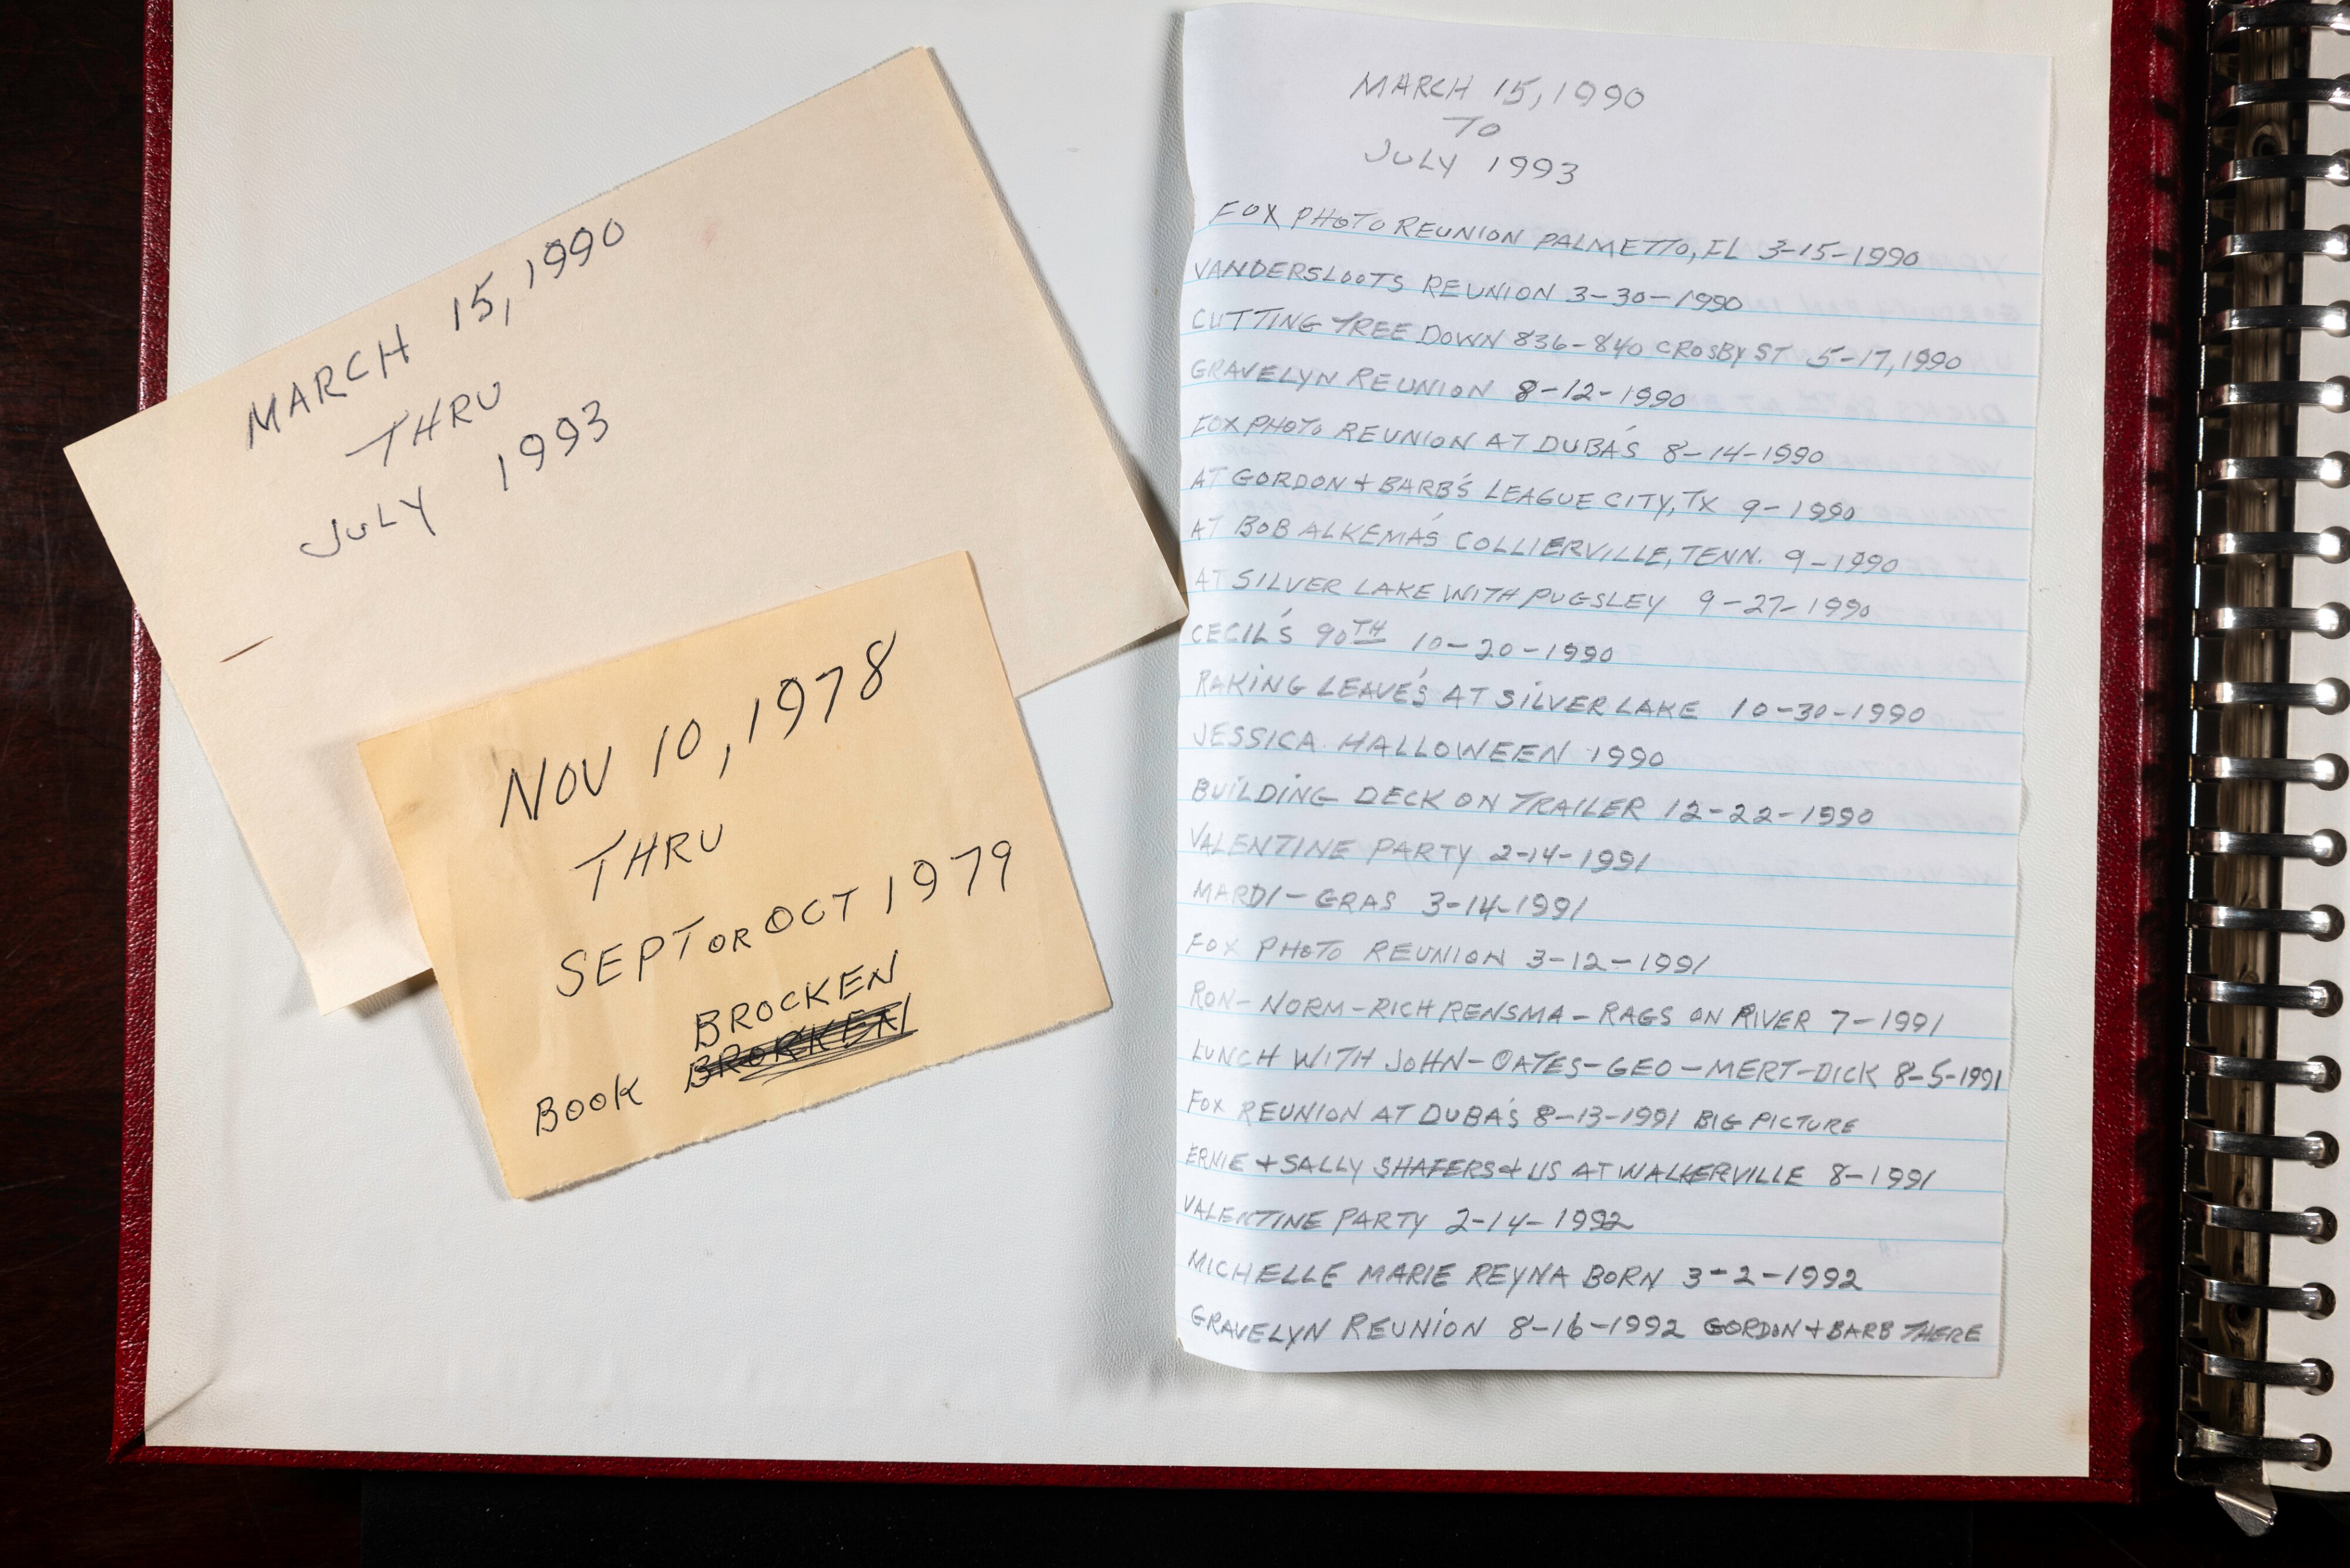 MARCH 15, 1990
THRU
JULY 1993
NOV 10, 1978
THRU
SEPT OR OCT 1979
BROCKEN
BOOK BRORKEN
MARCH 15, 1990
TO
JULY 1993
FOX PHOTO REUNION PALMETTO, FL 3-15-1990
VANDERSLOOTS REUNION 3-30-1990
CUTTING TREE DOWN 836-840 CROSBY ST 5-17, 1990
GRAVELYN REUNION 8-12-1990
FOX PHOTO REUNION AT DUBA'S 8-14-1990
AT GORDON + BARB'S LEAGUE CITY, TX 9-1990
AT BOB ALKEMA'S COLLIERVILLE, TENN. 9-1990
AT SILVER LAKE WITH PUGSLEY 9-27-1990
CECIL'S 90TH 10-20-1990
RAKING LEAVE'S AT SILVER LAKE 10-30-1990
JESSICA HALLOWEEN 1990
BUILDING DECK ON TRAILER 12-22-1990
VALENTINE PARTY 2-14-1991
MARDI-GRAS 3-14-1991
FOX PHOTO REUNION 3-12-1991
RON-NORM-RICH RENSMA-RAGS ON RIVER 7-1991
LUNCH WITH JOHN-OATES-GEO-MERT-DICK 8-5-1991
FOX REUNION AT DUBA'S 8-13-1991 BIG PICTURE
ERNIE + SALLY SHAFERS + US AT WALKERVILLE 8-1991
VALENTINE PARTY 2-14-1992
MICHELLE MARIE REYNA BORN 3-2-1992
GRAVELYN REUNION 8-16-1992 GORDON + BARB THERE